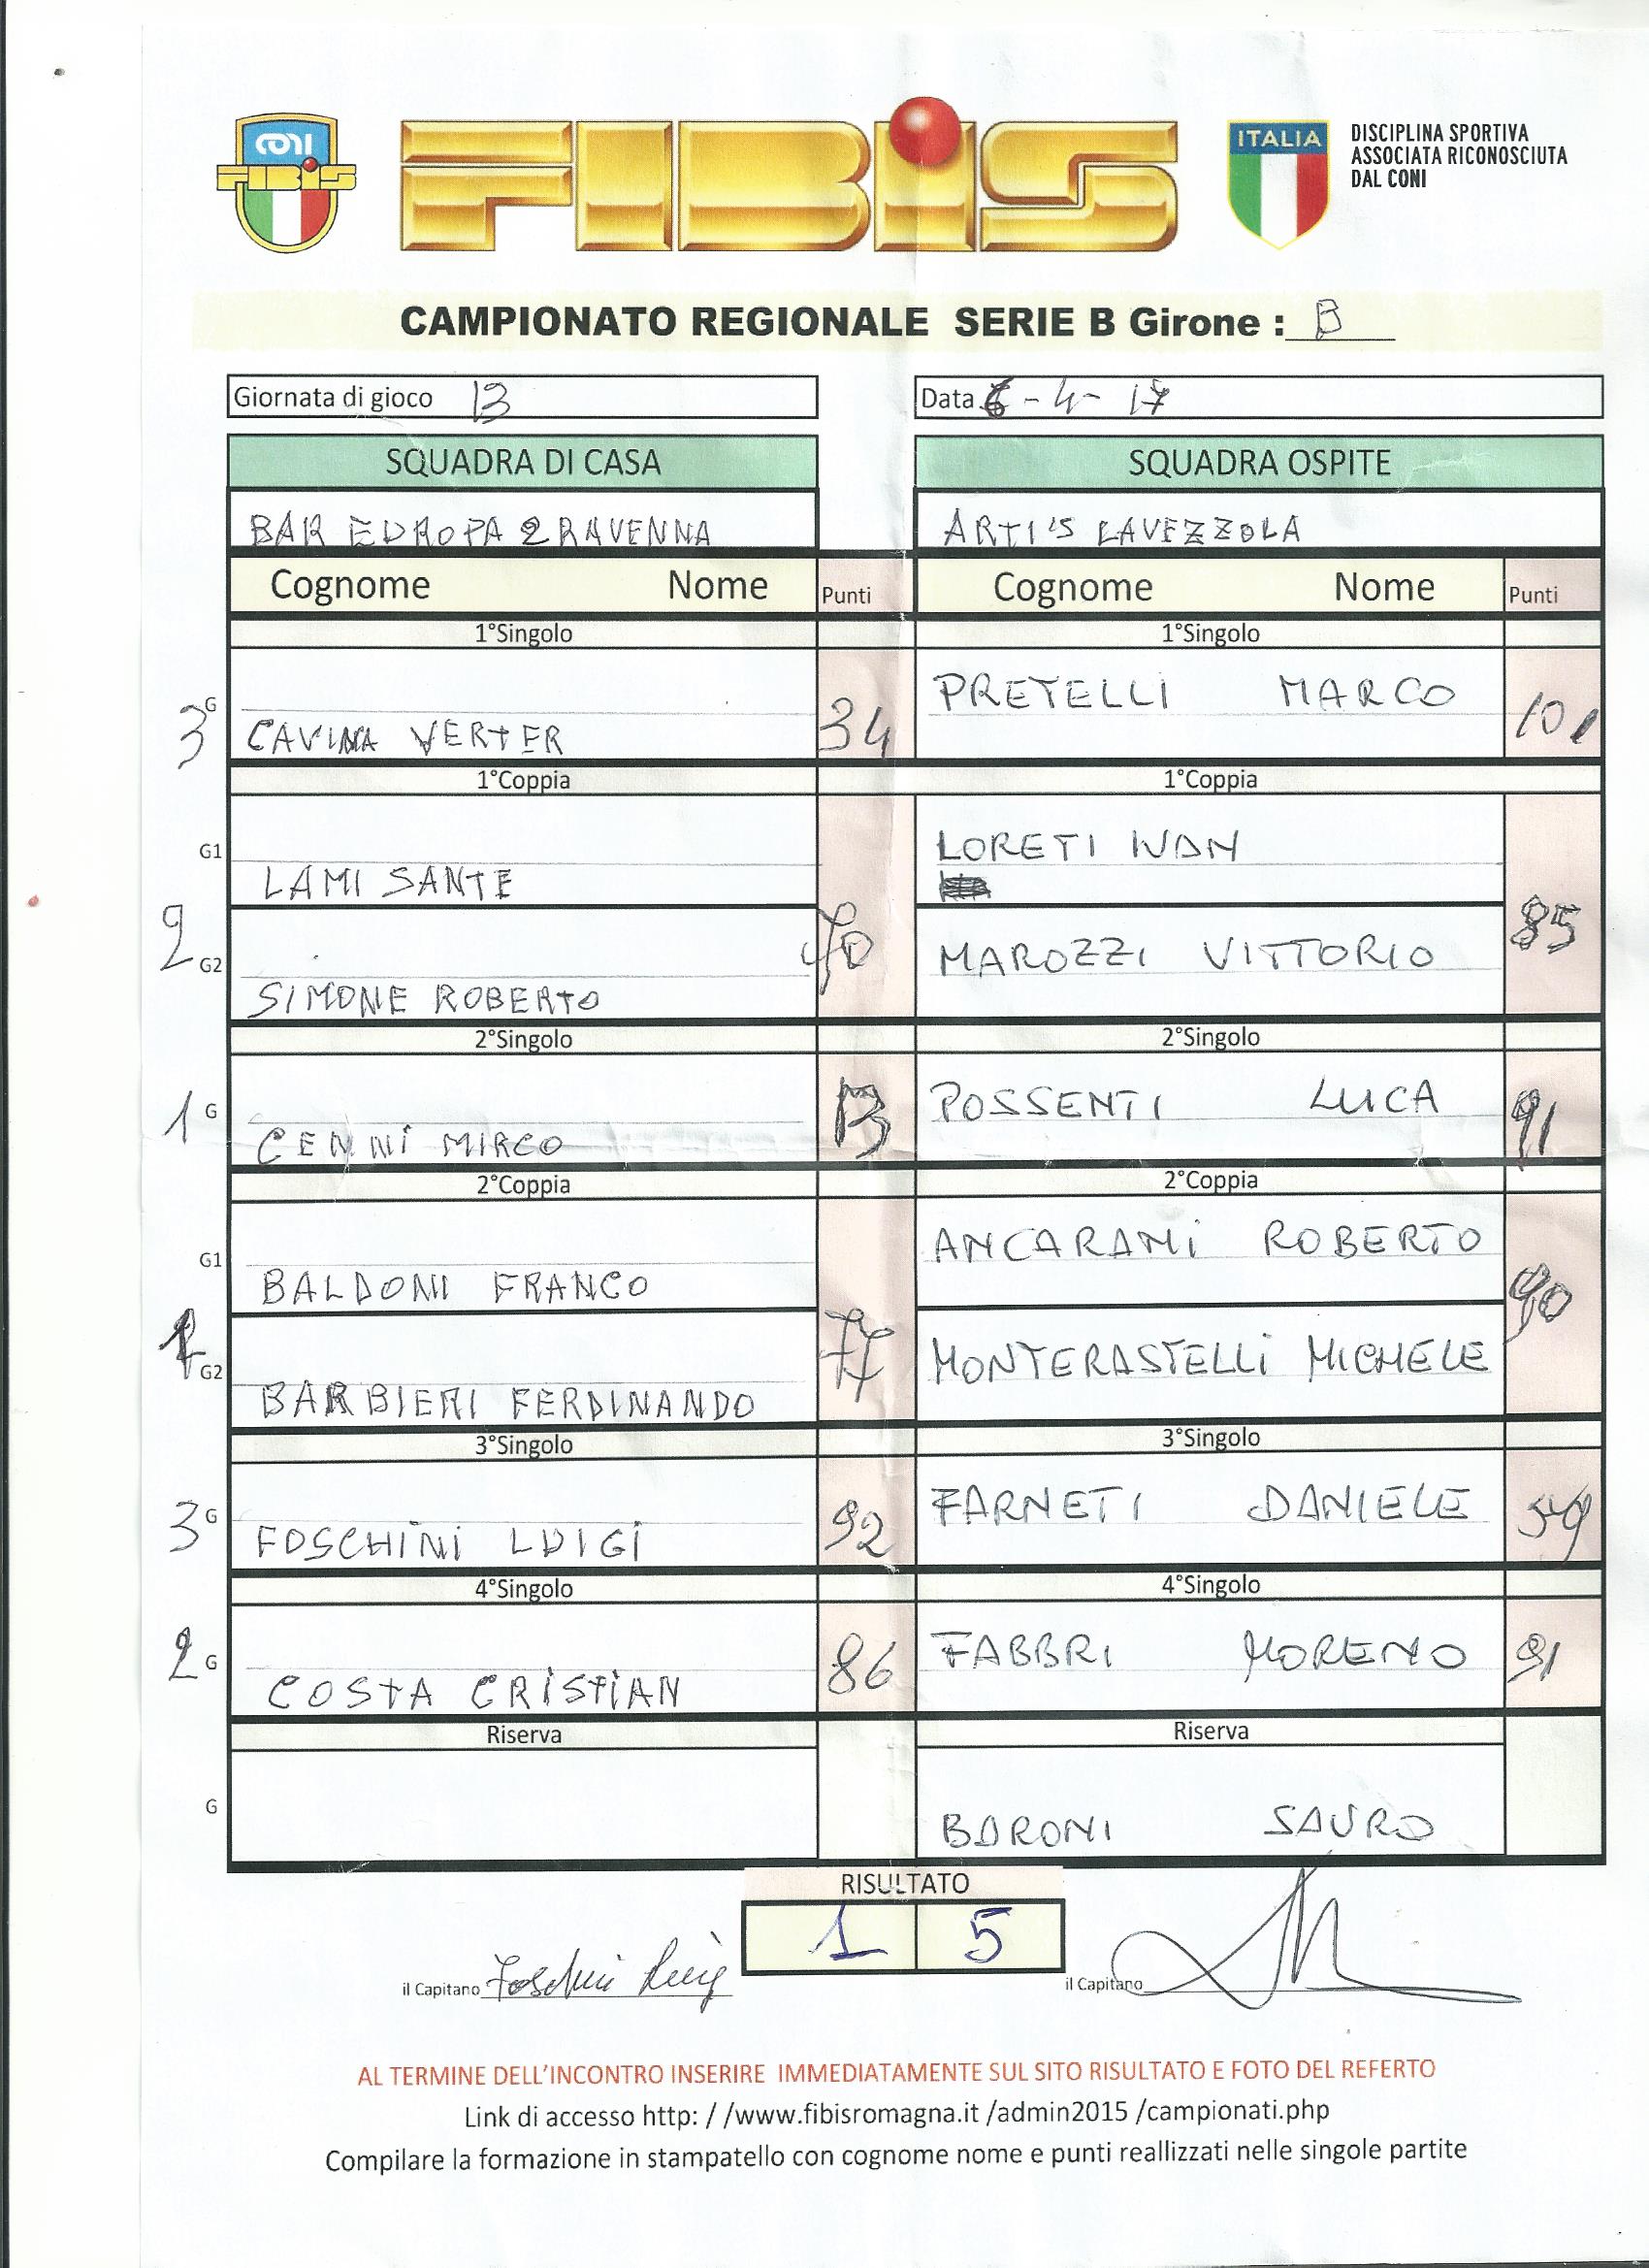 CONI
FIBIS
FIBIS
ITALIA
DISCIPLINA SPORTIVA
ASSOCIATA RICONOSCIUTA
DAL CONI
CAMPIONATO REGIONALE SERIE B Girone : B
Giornata di gioco 13
Data 6 - 4 - 17
SQUADRA DI CASA
SQUADRA OSPITE
BAR EUROPA 2 RAVENNA
ARTI'S LAVEZZOLA
Cognome Nome Punti
Cognome Nome Punti
1°Singolo
1°Singolo
3 G CAVINA VERTER 34
PRETELLI MARCO 101
1°Coppia
1°Coppia
G1 LAMI SANTE
LORETI IVAN
2 G2 SIMONE ROBERTO 70
MAROZZI VITTORIO 85
2°Singolo
2°Singolo
1 G CENNI MIRCO 13
POSSENTI LUCA 91
2°Coppia
2°Coppia
G1 BALDONI FRANCO
ANCARANI ROBERTO 90
1 G2 BARBIERI FERDINANDO 77
MONTERASTELLI MICHELE
3°Singolo
3°Singolo
3 G FOSCHINI LUIGI 92
FARNETI DANIELE 59
4°Singolo
4°Singolo
2 G COSTA CRISTIAN 86
FABBRI MORENO 91
Riserva
Riserva
G
BARONI SAURO
RISULTATO
1 5
il Capitano Foschini Luigi
il Capitano
AL TERMINE DELL'INCONTRO INSERIRE IMMEDIATAMENTE SUL SITO RISULTATO E FOTO DEL REFERTO
Link di accesso http: / /www.fibisromagna.it /admin2015 /campionati.php
Compilare la formazione in stampatello con cognome nome e punti reallizzati nelle singole partite